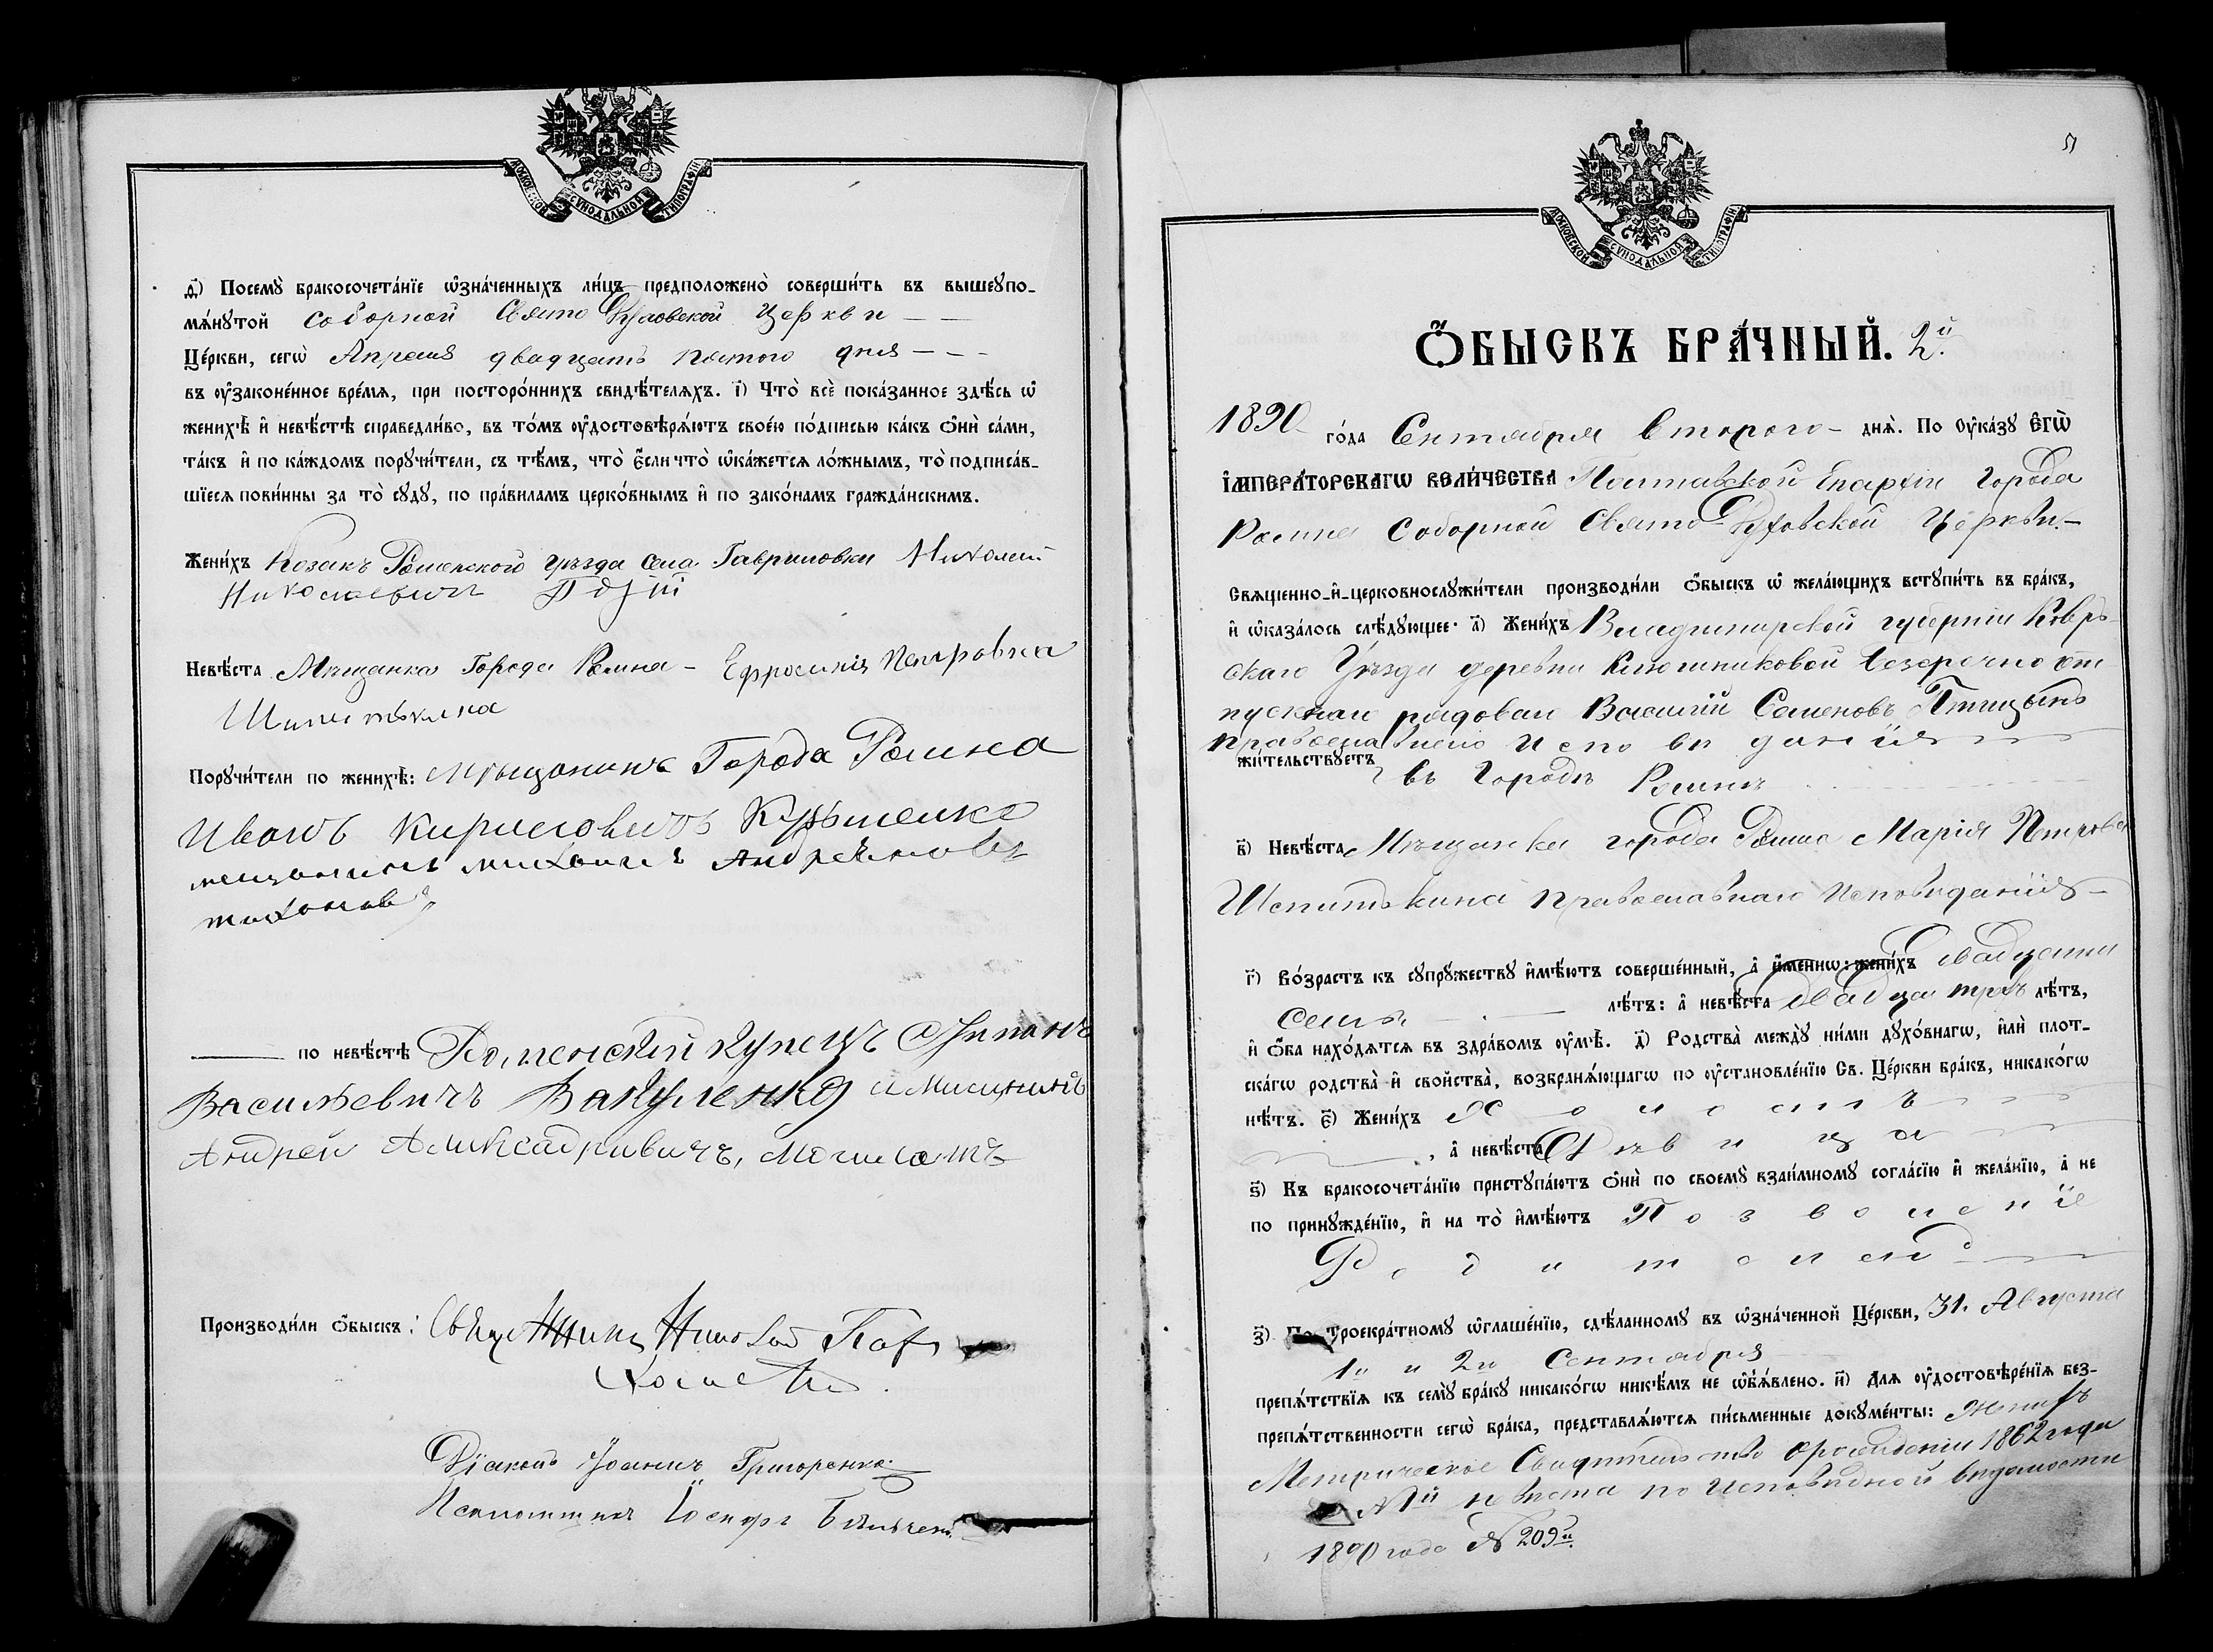 МОСКОВСКОЙ СѴНОДАЛЬНОЙ ТИПОГРАФІИ
Посемꙋ̀ бракосочета́нїе ѡ҆зна́ченныхъ ли́цъ предположено̀ соверши́ть въ вышеꙋпо-
мѧ́нꙋтой Соборной Свято Духовской Церкви
Це́ркви, сегѡ̀ Апреля двадцать пятого дня
въ ᲂу҆зако́ненное вре́мѧ, при посторо́ннихъ свидѣ́телѧхъ. і҃) Что̀ всѐ пока́занное здѣ́сь ѡ҆
женихѣ̀ и҆ невѣ́стѣ справедли́во, въ то́мъ ᲂу҆достовѣрѧ́ютъ свое́ю по́дписью ка́къ ѻ҆нѝ са́ми,
та́къ и҆ по ка́ждомъ порꙋчи́тели, съ тѣ́мъ, что̀ є҆́сли что̀ ѡ҆ка́жетсѧ ло́жнымъ, то̀ подписа́в-
шїесѧ пови́нны за то̀ сꙋдꙋ̀, по пра́виламъ церко́внымъ и҆ по зако́намъ гражда́нскимъ.
Жени́хъ Козакъ Роменского уѣзда села Гавриловки Николай
Николаевичъ
Невѣ́ста Мѣщанка Города Ромна - Ефросинія Петровна
Шипитькина
Порꙋчи́тели по женихѣ̀: Мѣщонинъ Города Ромна
Иванъ Кириловичъ
мещонинъ михаилъ Андреяновъ
тихонов
по невѣ́стѣ Роменскій купецъ
Васильевичъ Вакуленко и Мищининъ
Андрей
Производи́ли ѻ҆́быскъ: Свящ
Діаконъ Іоаннъ Григоренко
Псаломщикъ Іосифъ
51
МОСКОВСКОЙ СѴНОДАЛЬНОЙ ТИПОГРАФІИ
Ѻ҆́БЫСКЪ БРА́ЧНЫЙ. 2й.
1890 го́да Сентября второго - днѧ̀. По Оу҆ка́зꙋ Є҆ГѠ̀
І҆МПЕРА́ТОРСКАГѠ ВЕЛИ́ЧЕСТВА Полтавской Епархіи Города
Ромна Соборной Свято-Духовской Церкви.-
Свѧщенно-и҆-церковнослꙋжи́тели производи́ли ѻ҆́быскъ ѡ҆ жела́ющихъ встꙋпи́ть въ бра́къ,
и҆ ѡ҆каза́лось слѣ́дꙋющее: а҃) Жени́хъ Владимирской губерніи Ковров-
скаго Уѣзда деревни Клюшниковой безсрочно от
пускной рядовой Василій Семеновъ Птицынъ
православнаго исповѣданія
жи́тельствꙋетъ въ Городѣ Ромнѣ
в҃) Невѣ́ста Мѣщанка города Ромна Марія Петрова
Шепитькина православнаго исповѣданія -
г҃) Во́зрастъ къ сꙋпрꙋ́жествꙋ и҆мѣ́ютъ соверше́нный, а҆ и҆́меннѡ: жени́хъ двадцати
семи лѣ́тъ: а҆ невѣ́ста двадцати трехъ лѣ́тъ,
и҆ ѻ҆́ба нахо́дѧтсѧ въ здра́вомъ ᲂу҆мѣ̀. д҃) Родства̀ междꙋ̀ ни́ми дꙋхо́внагѡ, и҆лѝ плот-
ска́гѡ родства̀ и҆ свойства̀, возбранѧ́ющагѡ по ᲂу҆становле́нїю Св. Це́ркви бра́къ, никако́гѡ
нѣ́тъ. є҃) Жени́хъ Холостъ
, а҆ невѣ́ста Дѣвица
ѕ҃) Къ бракосочета́нїю пристꙋпа́ютъ ѻ҆нѝ по своемꙋ̀ взаи́мномꙋ согла́сїю и҆ жела́нїю, а҆ не
по принꙋжде́нїю, и҆ на то̀ и҆мѣ́ютъ Позволеніе
Родителей
з҃) По троекра́тномꙋ ѡ҆глаше́нїю, сдѣ́ланномꙋ въ ѡ҆зна́ченной Це́ркви, 31. Августа
1го и 2го Сентября
препѧ́тствїѧ къ семꙋ̀ бра́кꙋ никако́гѡ никѣ́мъ не ѡ҆б̾ѧ́влено. и҃) Длѧ ᲂу҆достовѣре́нїѧ без-
препѧ́тственности сегѡ̀ бра́ка, представлѧ́ютсѧ пи́сьменные докꙋме́нты: Женихъ
Метрическое Свидѣтельство о рожденіи 1862 года
№ 1й невѣста по исповѣдной вѣдомости
1890 года № 209й.